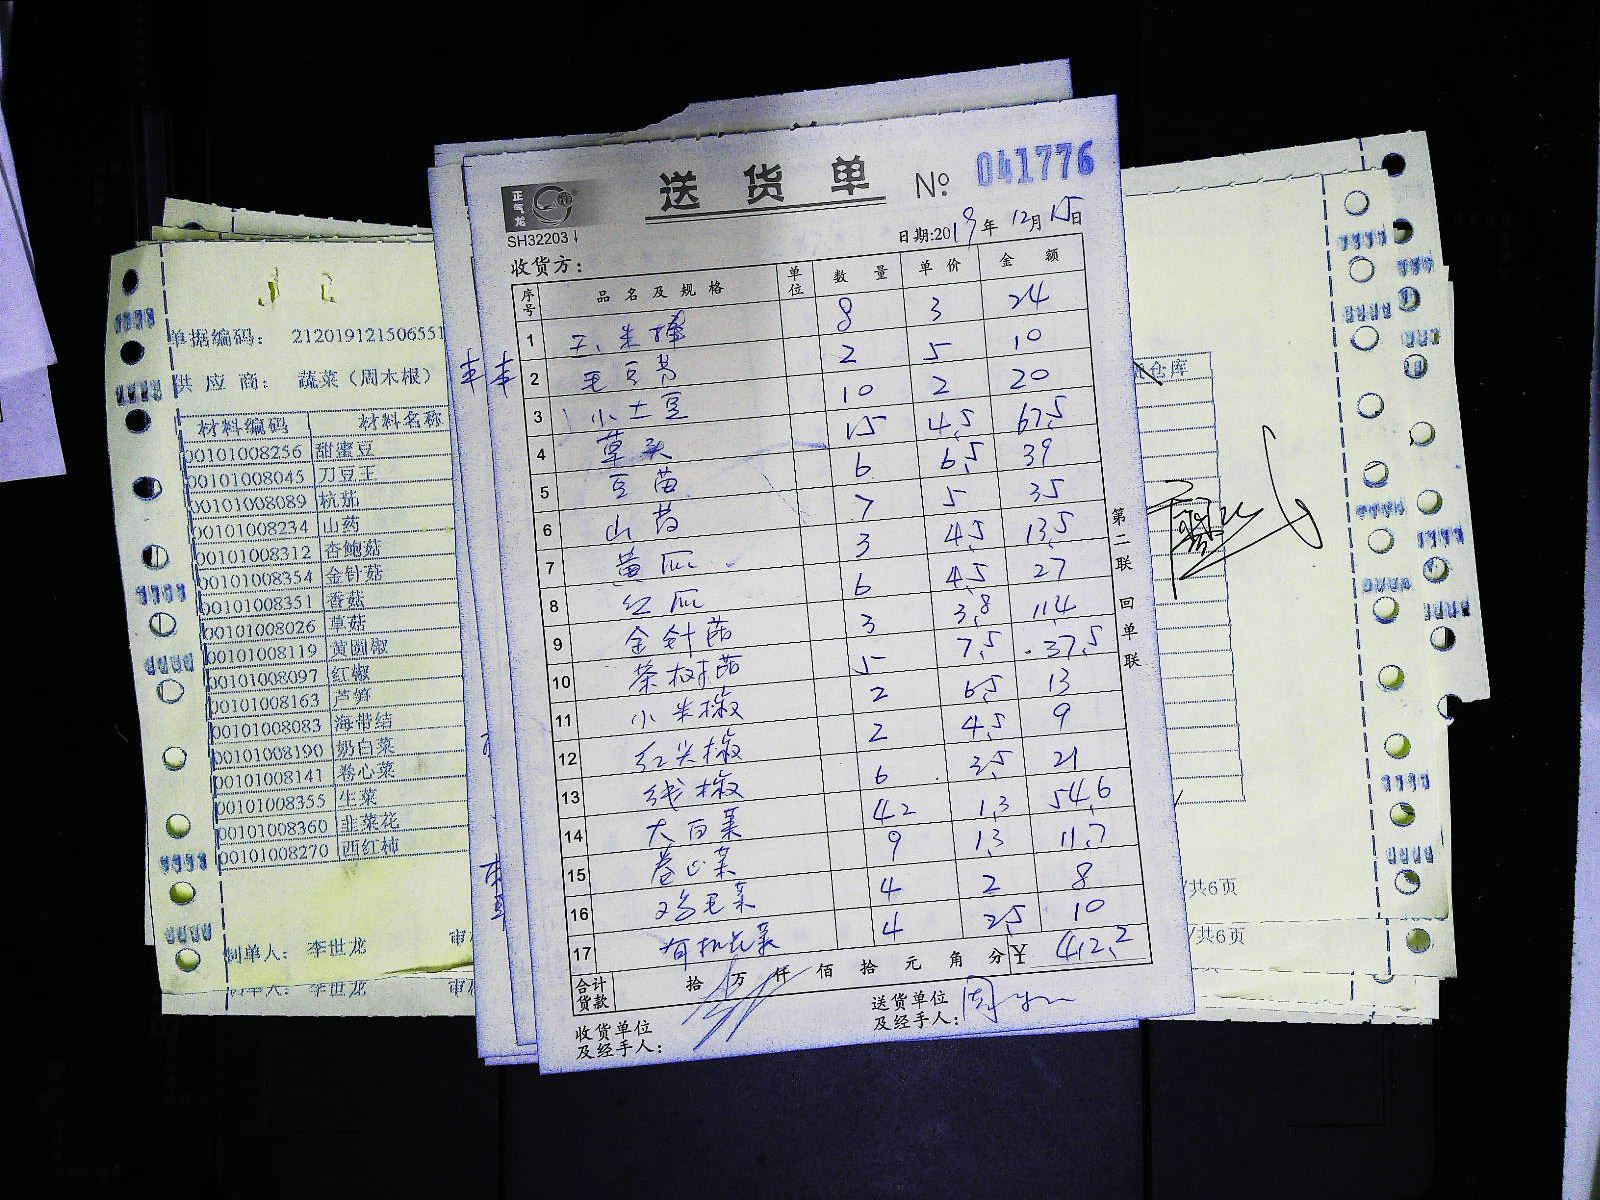 送货单 № 041776
正气龙
SH32203
日期:2019年12月15日
收货方:
序号 品名及规格 单位 数量 单价 金额
1 玉米棒 8 3 24
2 毛豆节 2 5 10
3 小土豆 10 2 20
4 草头 15 4.5 67.5
5 豆苗 6 6.5 39
6 山药 7 5 35
7 黄瓜 3 4.5 13.5
8 红瓜 6 4.5 27
9 金针菇 3 3.8 11.4
10 茶树菇 5 7.5 37.5
11 小米椒 2 6.5 13
12 红尖椒 2 4.5 9
13 线椒 6 3.5 21
14 大白菜 42 1.3 54.6
15 卷心菜 9 1.3 11.7
16 鸡毛菜 4 2 8
17 有机花菜 4 2.5 10
合计货款 拾 万 仟 佰 拾 元 角 分 ¥ 412.2
收货单位及经手人:
送货单位及经手人:
第二联 回单联
单据编码: 212019121506551
供应商: 蔬菜(周木根)
材料编码 材料名称
00101008256 甜蜜豆
00101008045 刀豆王
00101008089 杭茄
00101008234 山药
00101008312 杏鲍菇
00101008354 金针菇
00101008351 香菇
00101008026 草菇
00101008119 黄圆椒
00101008097 红椒
00101008163 芦笋
00101008083 海带结
00101008190 奶白菜
00101008141 卷心菜
00101008355 生菜
00101008360 韭菜花
00101008270 西红柿
制单人: 李世龙
制单人: 李世龙
仓库
/共6页
/共6页